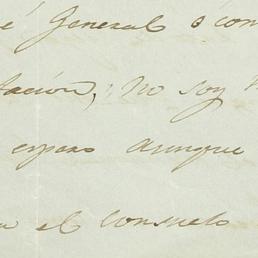 é General ó com
tación, no soy
espero aunque
el Consuelo